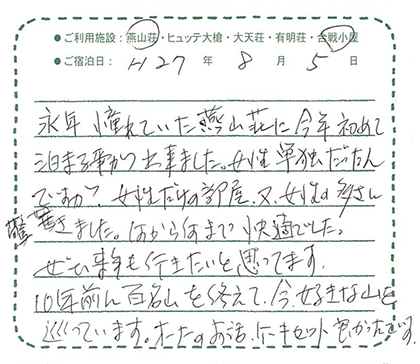 ●ご利用施設:燕山荘・ヒュッテ大槍・大天荘・有明荘・合戦小屋
●ご宿泊日: H27 年 8 月 5 日
永年憧れていた燕山荘に今年初めて
泊まる事が出来ました。女性単独だったん
ですが、女性だけの部屋、又、女性の多さに
驚きました。何から何まで快適でした。
ぜひ来年も行きたいと思ってます。
10年前に百名山を終えて、今、好きな山を
巡っています。オーナーのお話、ケーキセット良かったです